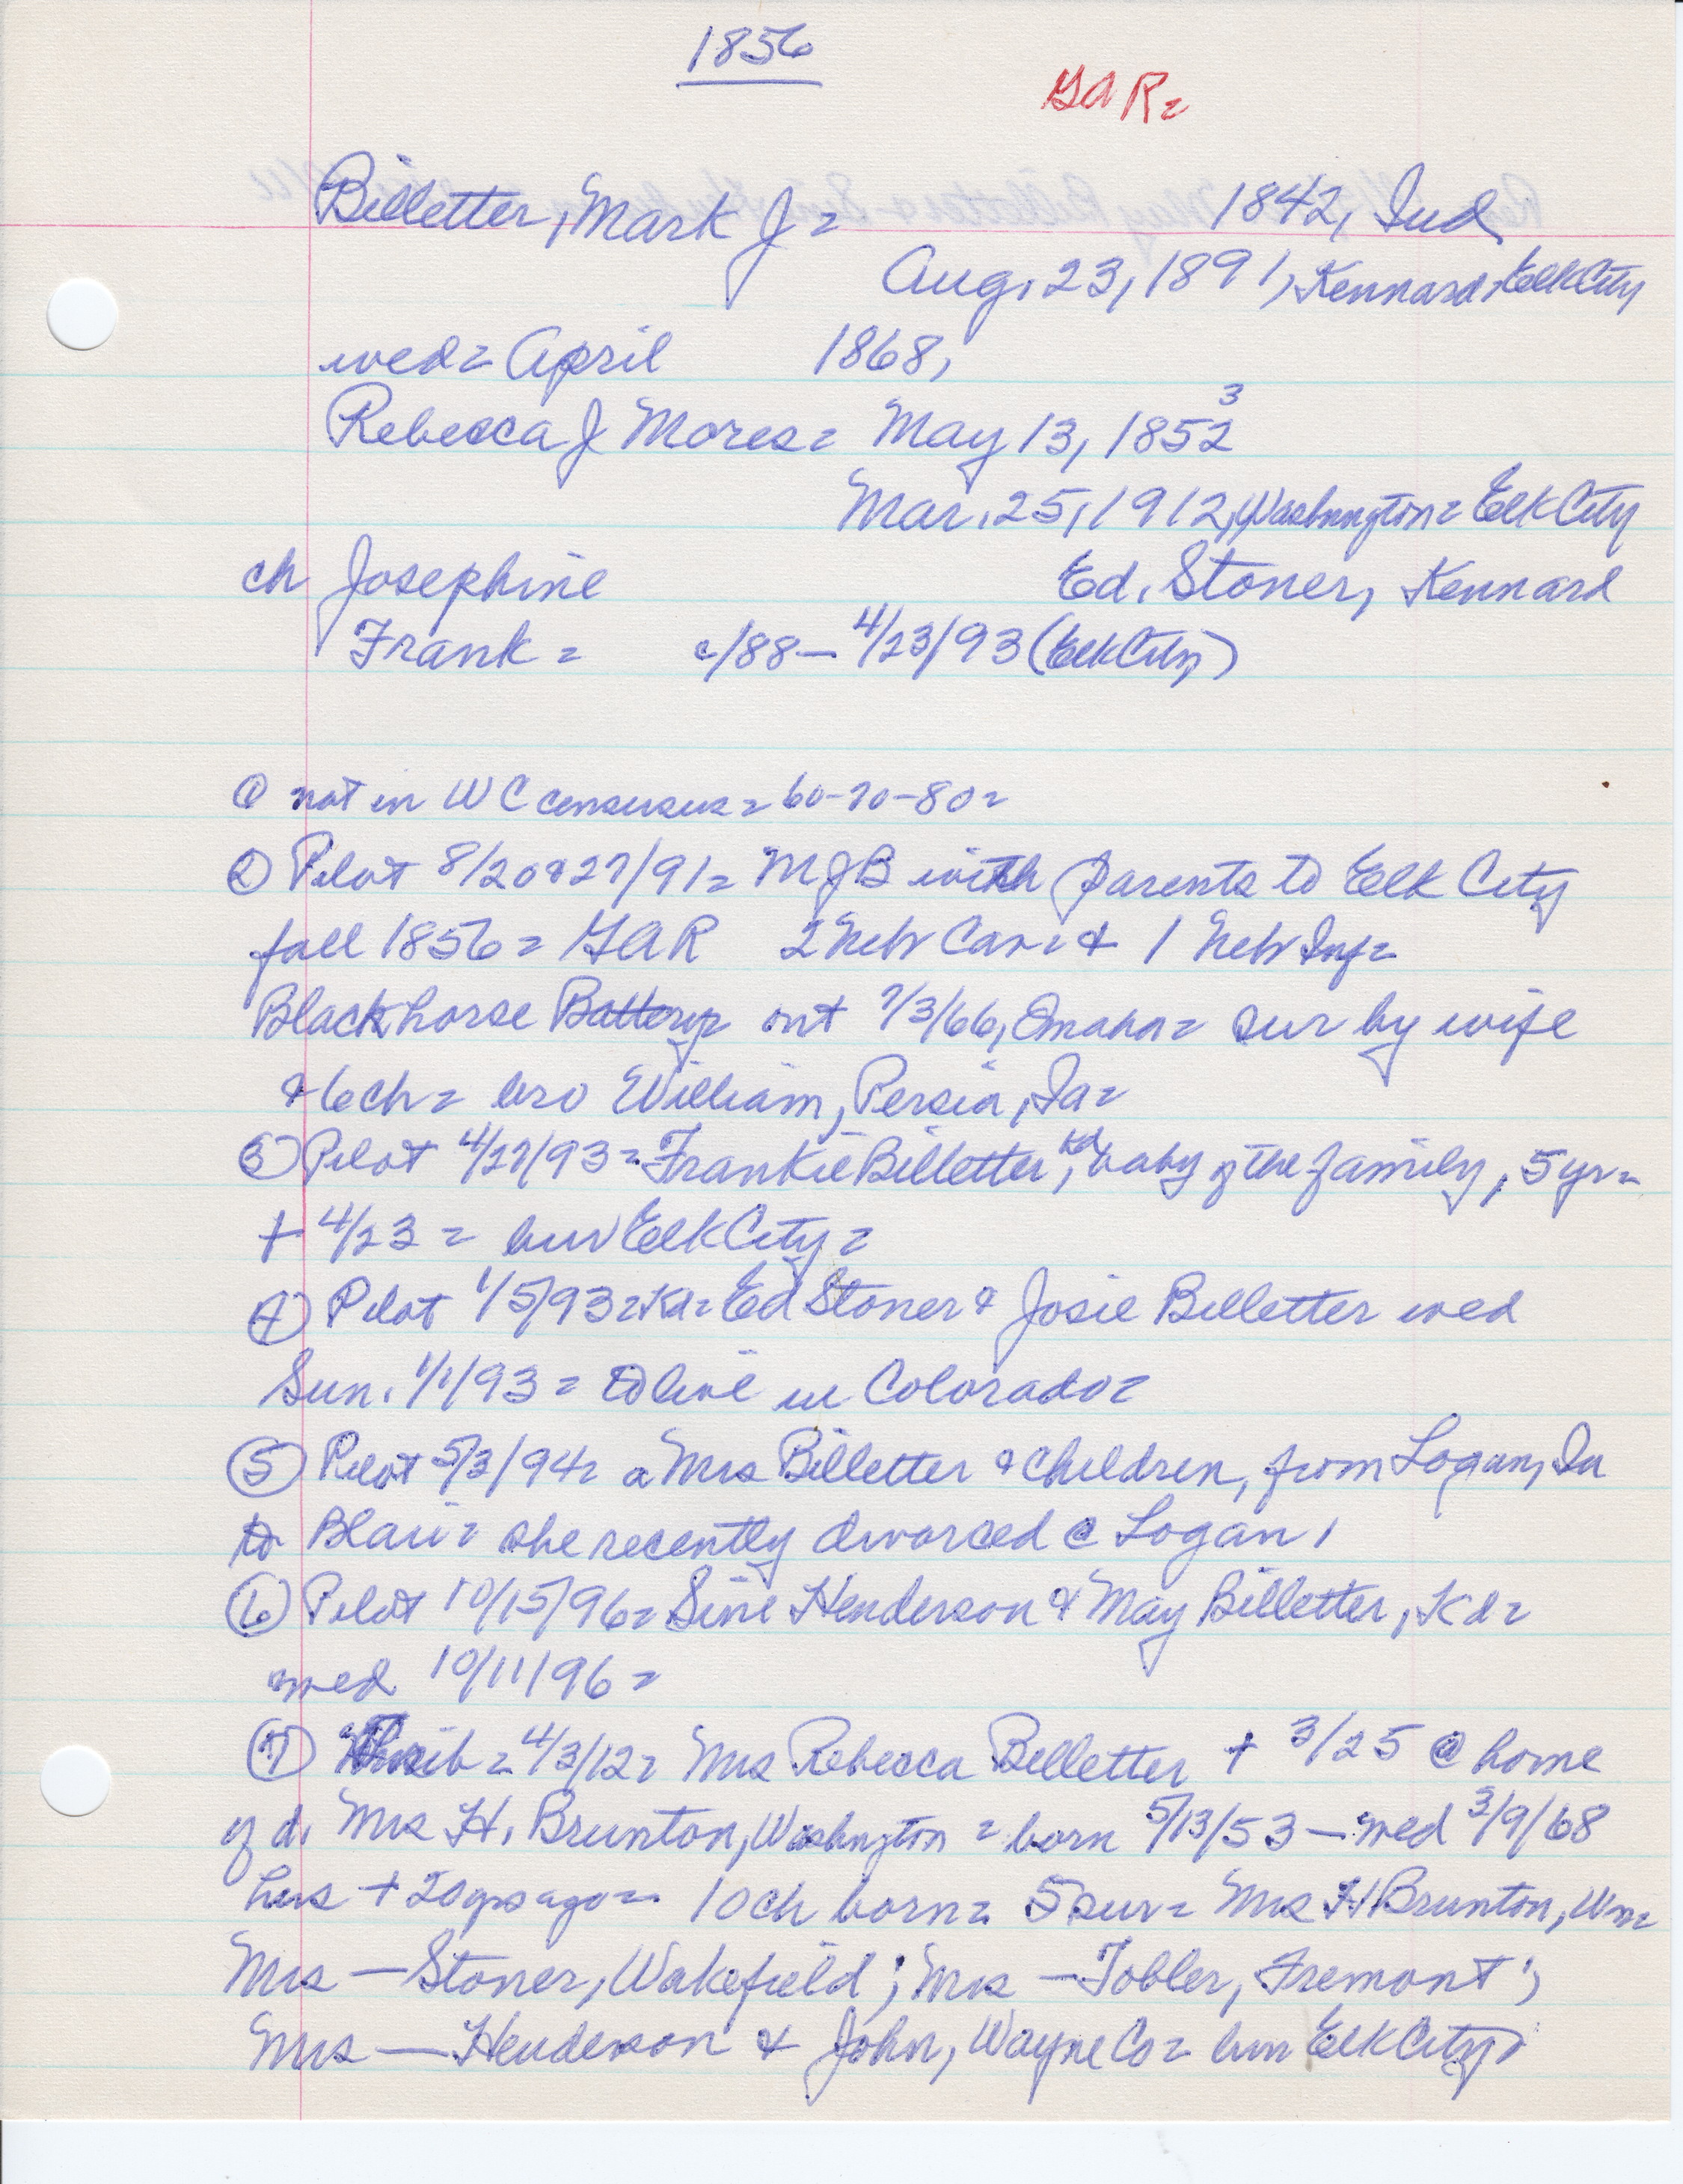 1856
GAR=
Billetter, Mark J = 1842, Ind
Aug. 23, 1891, Kennard, Elk City
wed = April 1868,
3
Rebecca J Mores = May 13, 1852
Mar. 25, 1912, Washington = Elk City
ch Josephine Ed. Stoner, Kennard
Frank = c/88 — 4/23/93 (Elk City)
① not in W C censuses = 60-70-80 =
② Pilot 8/20 & 27/91 = MJB with parents to Elk City
fall 1856 = GAR 2 Neb Cav. & 1 Neb Inf =
Black horse Battery out 7/3/66, Omaha = sur by wife
& 6 ch = bro William, Persia, Ia =
③ Pilot 4/27/93 = Frankie Billetter, Kd, baby of the family, 5 yr =
+ 4/23 = bur Elk City =
④ Pilot 1/5/93 = Kd = Ed Stoner & Josie Billetter wed
Sun. 1/1/93 = to live in Colorado =
⑤ Pilot 5/3/94 = a Mrs Billetter & children, from Logan, Ia
to Blair = she recently divorced @ Logan,
⑥ Pilot 10/15/96 = Sine Henderson & May Billetter, Kd =
wed 10/11/96 =
⑦ 4/3/12 = Mrs Rebecca Billetter + 3/25 @ home
of d. Mrs H. Brunton, Washington = born 5/13/53 — wed 3/9/68
hus + 20 yrs ago = 10 ch born = 5 sur = Mrs H Brunton, Wn =
Mrs — Stoner, Wakefield; Mrs — Tobler, Fremont;
Mrs — Henderson & John, Wayne Co = bur Elk City